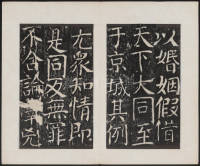 以婚姻假借
天下大同至
于京城其例
尤衆知情即
是固反無罪
不合論